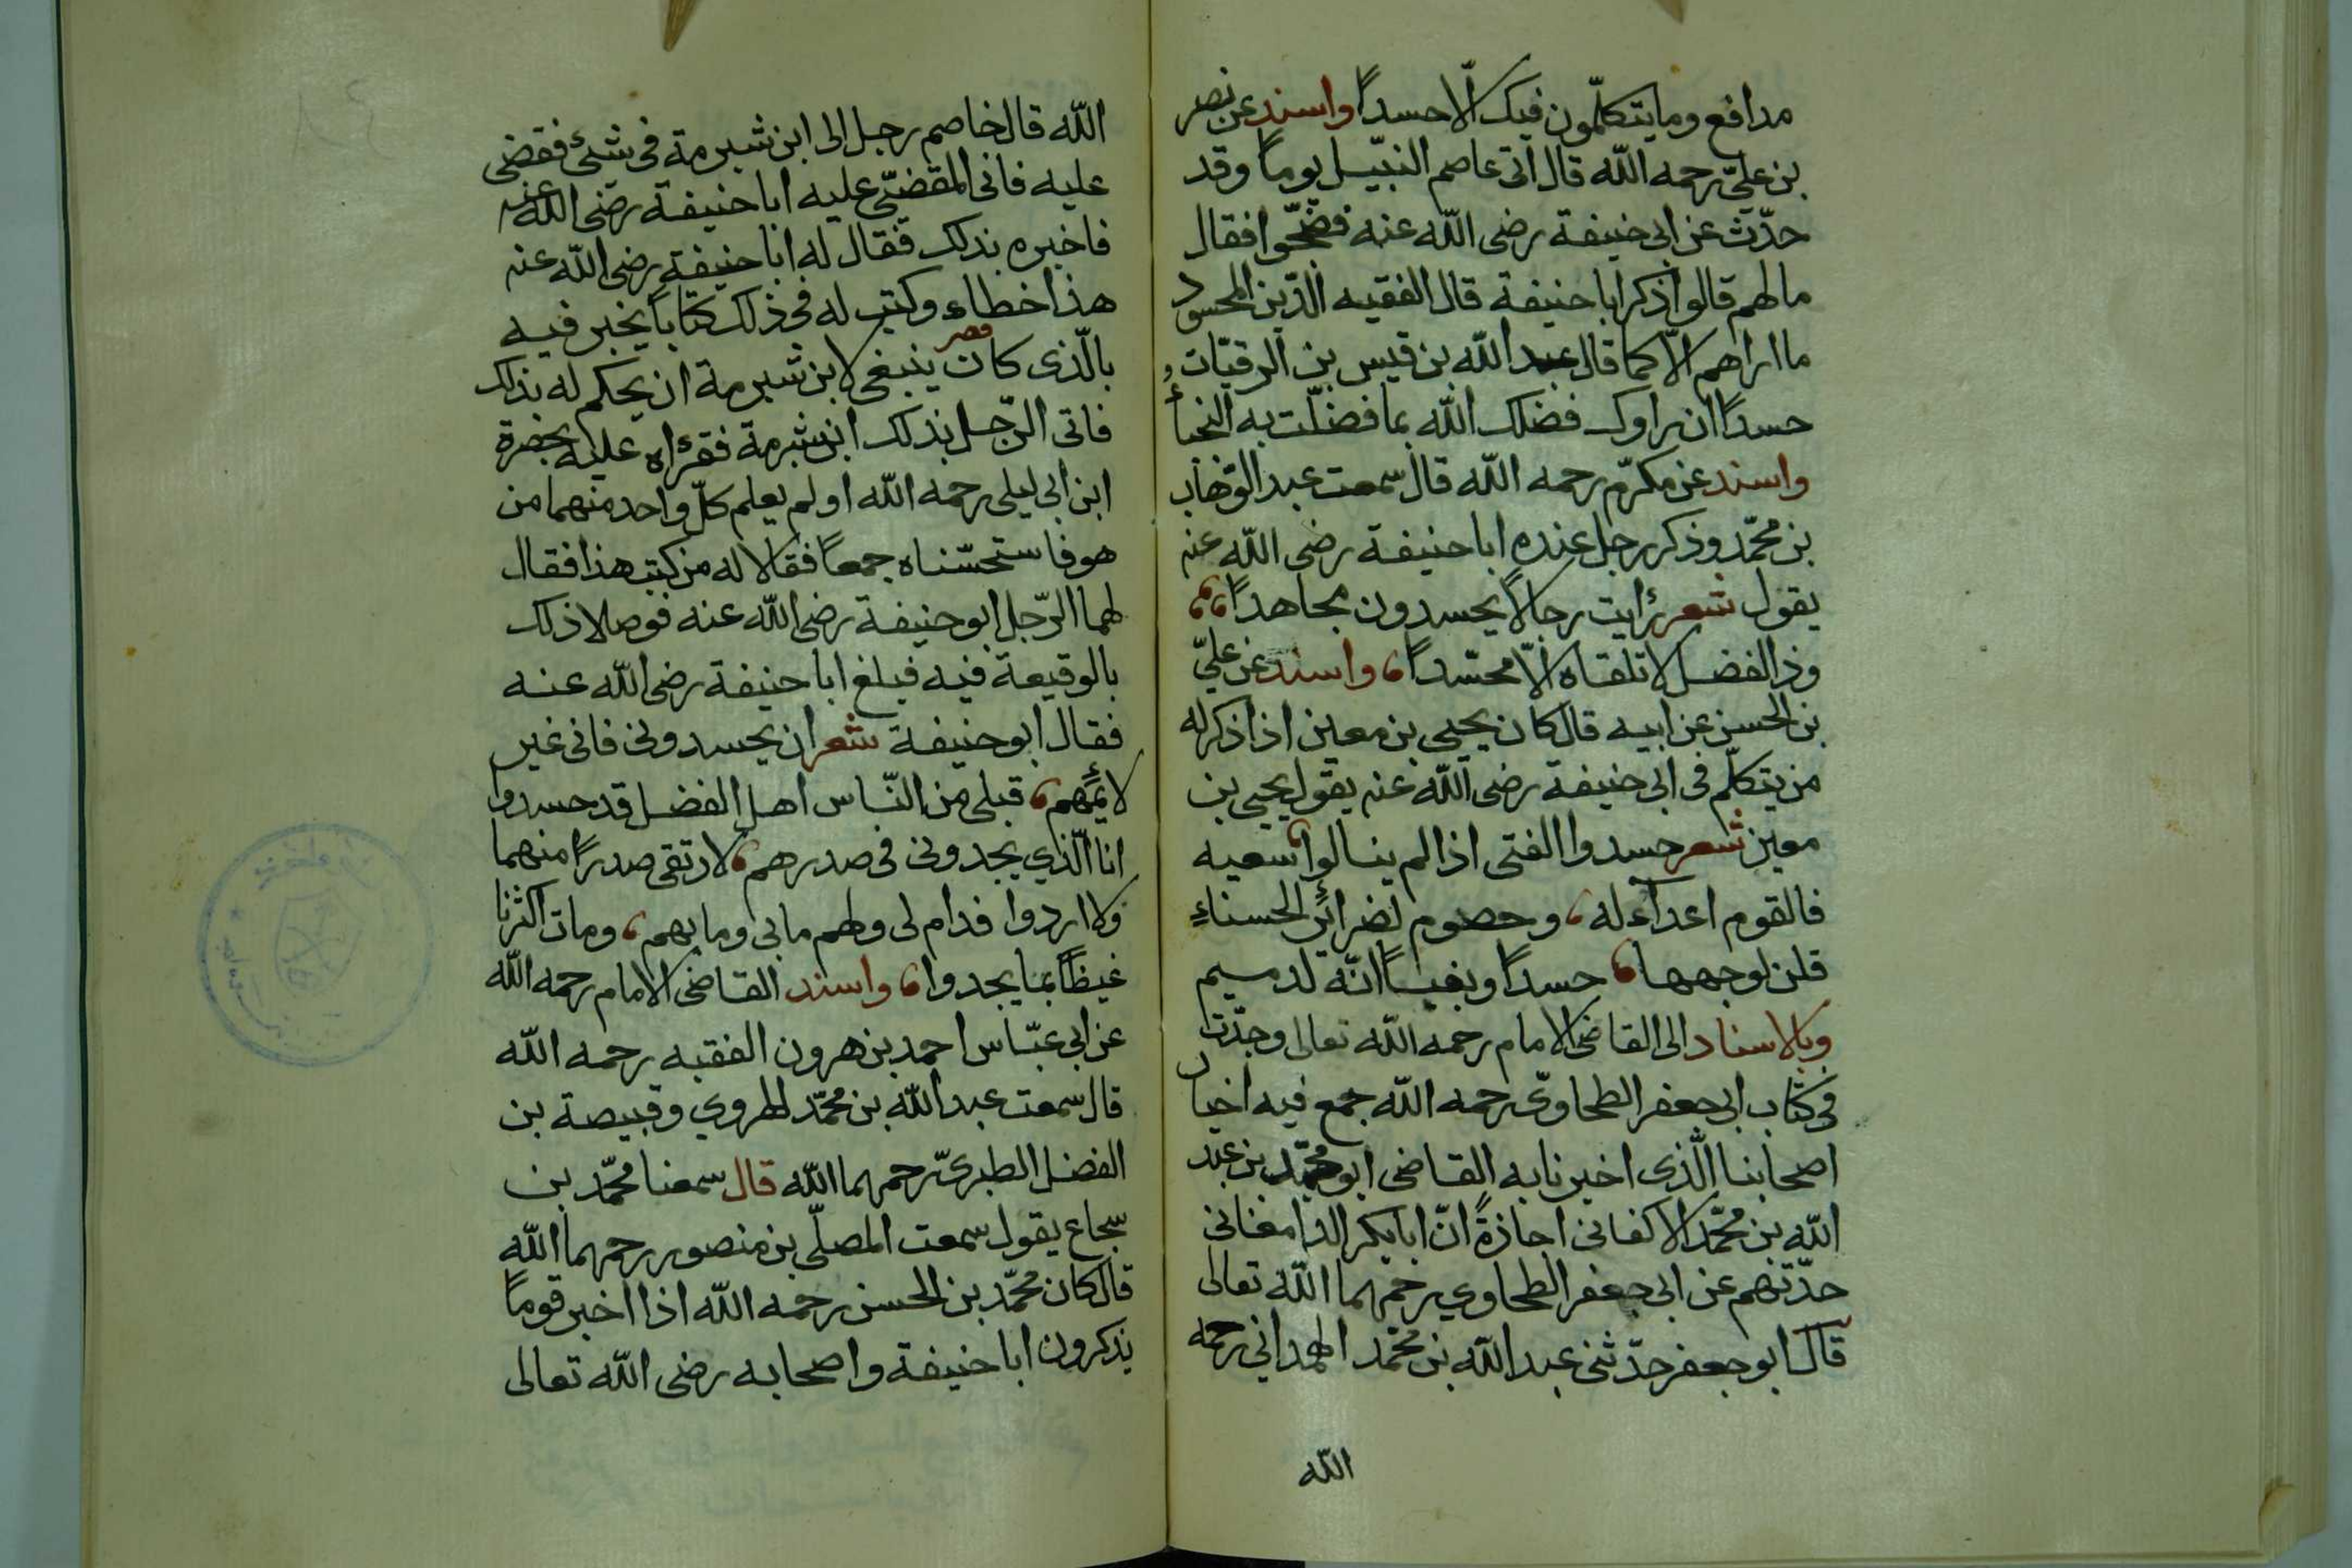 مدافع وما يتكلّمون فيك الّا حسداً واسند عن نصر
بن عليّ رحمه الله قال اتى عاصم النبّيل يوماً وقد
حدّث عن ابى حنيفة رضى الله عنه فضجّوا فقال
مالهم قالوا ذكر ابا حنيفة قال الفقيه الدّين المحسود
ما اراهم الّا كما قال عبد الله بن قيس بن الرقيّات
حسداً ان راوك فضلك الله بما فضّلت به النجبأ
واسند عن مكرّم رحمه الله قال سمعت عبد الوّهاب
بن محمّد وذكر رجل عنده ابا حنيفة رضى الله عنه
يقول شعر رأيت رجالاً يحسدون مجاهداً
وذا الفضل لا تلقاه الّا محسّداً واسند عن عليّ
بن الحسن عن ابيه قال كان يحيى بن معين اذا ذكر له
من يتكلّم فى ابى حنيفة رضى الله عنه يقول يحيى بن
معين شعر حسدوا الفتى اذا لم ينالوا سعيه
فالقوم اعداء له وخصوم لضرائر الحسناء
قلن لوجهها حسداً وبغياً انّه لدميم
وبالاسناد الى القاضى الامام رحمه الله تعالى وجدّت
فى كتاب ابى جعفر الطحاوىّ رحمه الله جمع فيه اخبار
اصحابنا الّذى اخبرنا به القاضى ابو محمّد بن عبد
الله بن محمّد الاكفانى اجازةً انّ ابا بكر الدامغانى
حدّثهم عن ابى جعفر الطحاوي رحمهما الله تعالى
قال ابو جعفر حدّثنى عبد الله بن محمّد الهمدانى رحمه
الله
الله قال خاصم رجل الى ابن شبرمة فى شئ فقضى
عليه فاتى المقضىّ عليه ابا حنيفة رضى الله عنه
فاخبره بذلك فقال له ابا حنيفة رضى الله عنه
هذا خطاء وكتب له فى ذلك كتاباً يخبر فيه
بالّذى كان ينبغى لابن شبرمة ان يحكم له بذلك
فاتى الرّجل بذلك ابن شبرمة فقرأه عليه بحضرة
ابن ابى ليلى رحمه الله او لم يعلم كلّ واحد منهما من
هو فاستحسّناه جمعاً فقالا له من كتب هذا فقال
لهما الرّجل ابو حنيفة رضى الله عنه فوصلا ذلك
بالوقيعة فيه فبلغ ابا حنيفة رضى الله عنه
فقال ابو حنيفة شعر ان يحسدونى فانى غير
لائمهم قبلى من النّاس اهل الفضل قد حسدوا
انا الّذي يجدونى فى صدرهم لا ارتقى صدراً منهما
ولا اردوا فدام لى ولهم ما بى وما بهم ومات اكثرنا
غيظاً بما يجدوا واسند القاضى الامام رحمه الله
عن ابى عبّاس احمد بن هرون الفقيه رحمه الله
قال سمعت عبد الله بن محمّد الهروي وقبيصة بن
الفضل الطبرىّ رحمهما الله قال سمعنا محمّد بن
سجاع يقول سمعت المصلّى بن منصور رحمهما الله
قال كان محمّد بن الحسن رحمه الله اذا اخبر قوماً
يذكرون ابا حنيفة واصحابه رضى الله تعالى